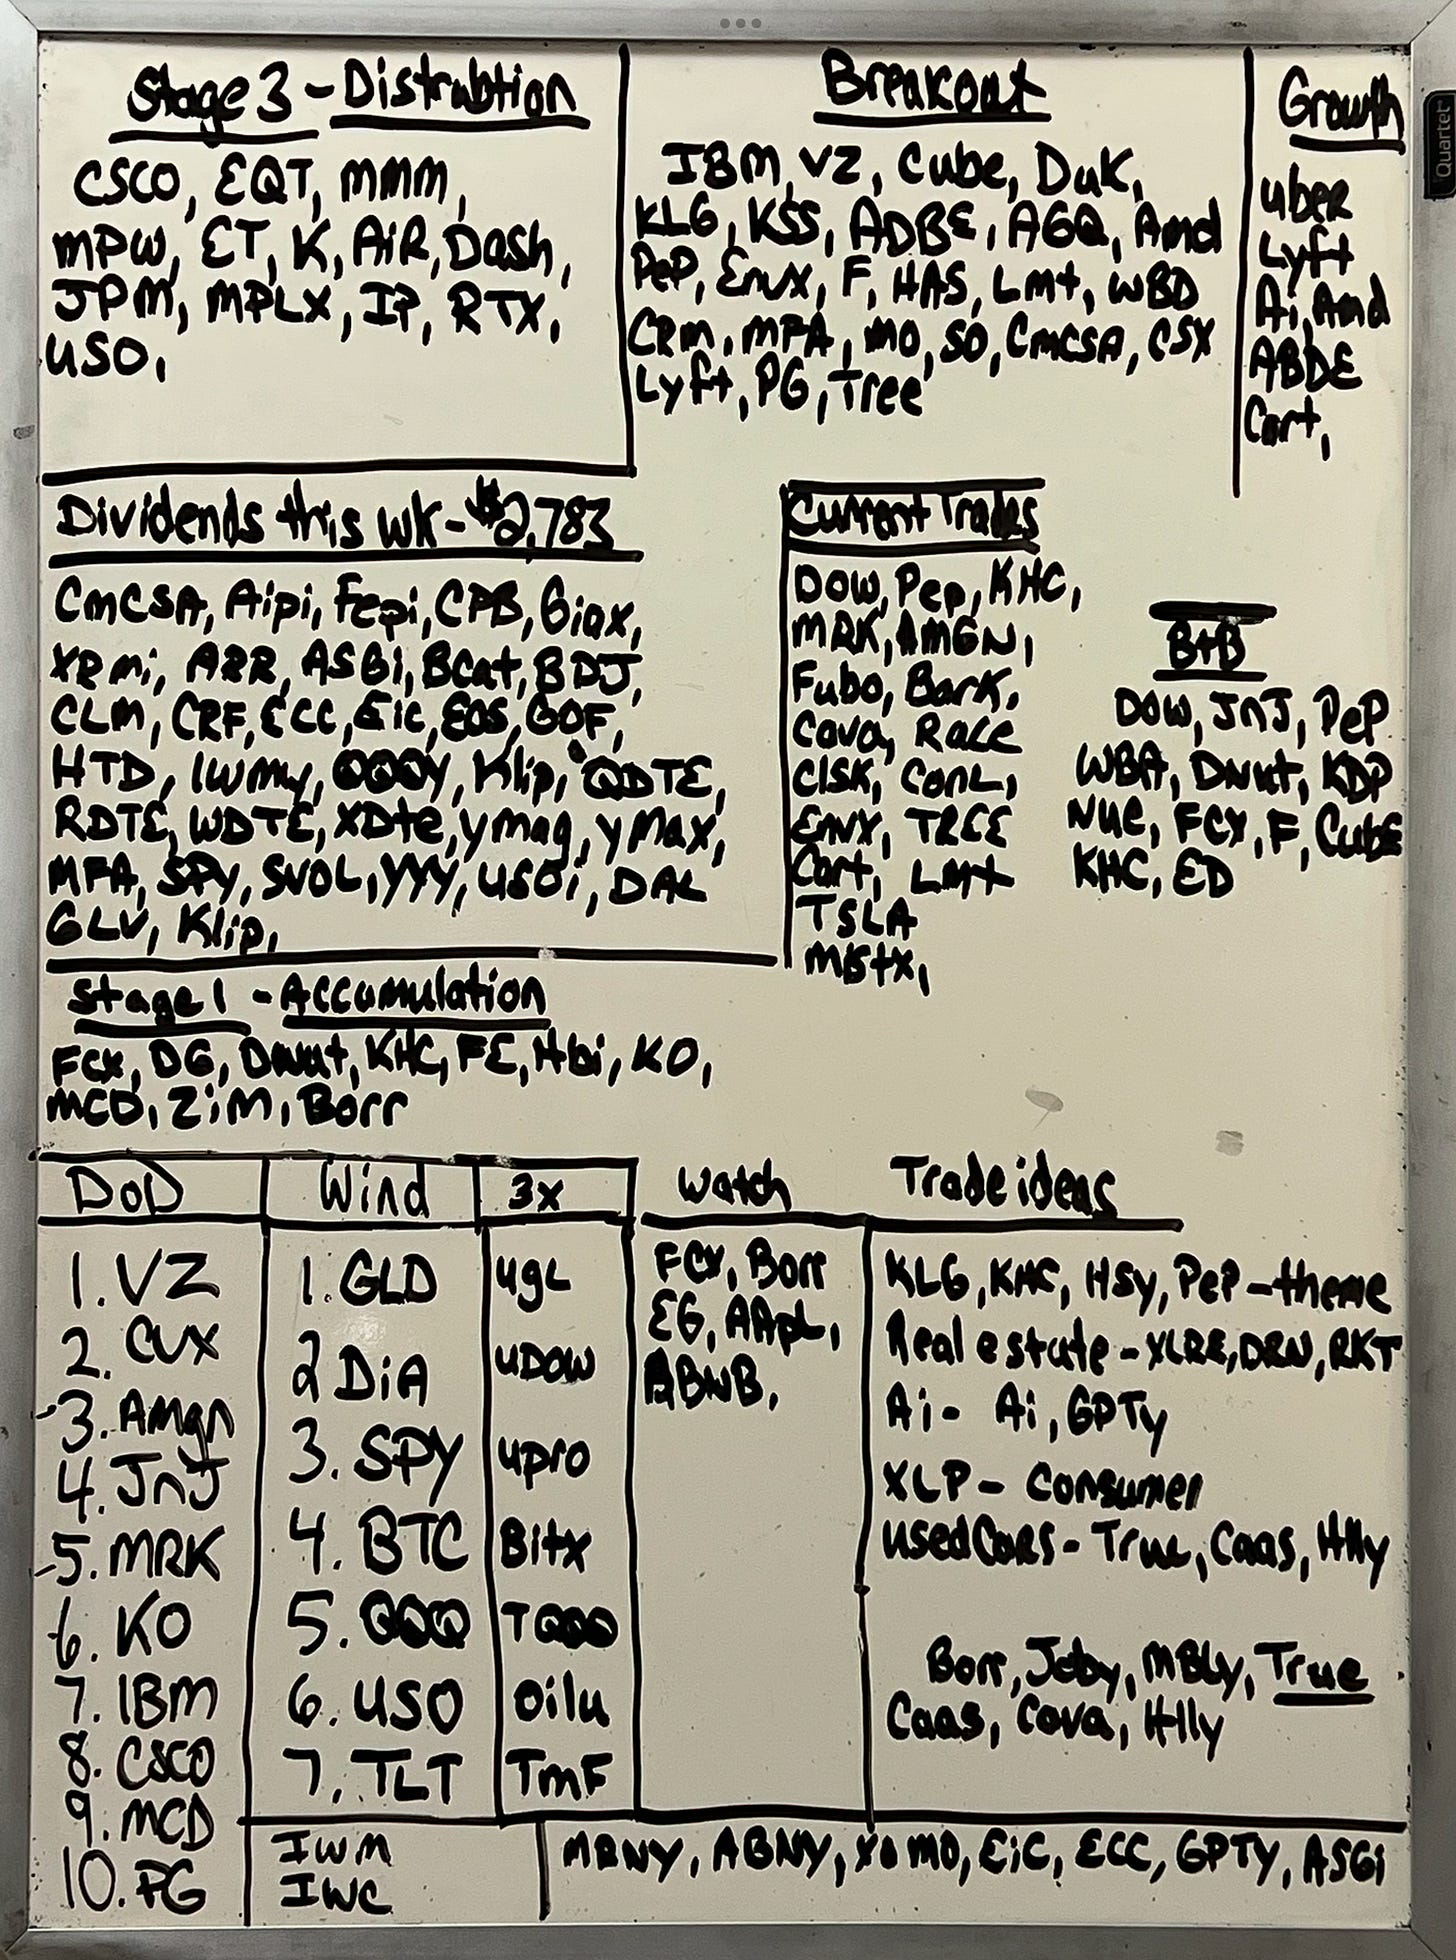 Stage 3 - Distrubtion
CSCO, EQT, MMM,
MPW, ET, K, AiR, Dash,
JPM, MPLX, IP, RTX,
USO,
Breakout
IBM, VZ, Cube, DUK,
KLG, KSS, ADBE, AGQ, Amd
PeP, Envx, F, HAS, Lmt, WBD
CRM, MFA, MO, SO, CmCSA, CSX
Lyft, PG, Tree
Growth
uber
Lyft
Ai, Amd
ABDE
Cart,
Quartet
Dividends this wk - $2,783
CmCSA, Aipi, Fepi, CPB, Giax,
XRmi, ARR, ASGi, Bcat, BDJ,
CLM, CRF, ECC, Eic, EOS, GOF,
HTD, iwmy, QQQY, Klip, QDTE,
RDTE, WDTE, XDte, ymag, yMax,
MFA, SPY, SVOL, YYY, USOi, DAL
GLV, Klip,
Current Trades
DOW, Pep, KHC,
MRK, AMGN,
Fubo, Bark,
Cava, Race
ClSK, ConL,
ENVX, TREE
Cart, Lmt
TSLA
Mstx,
B+B
DOW, JnJ, PeP
WBA, Dnut, KDP
NUE, FCX, F, Cube
KHC, ED
Stage 1 - Accumulation
FCX, DG, Dnut, KHC, FE, Hbi, KO,
MCD, ZiM, Borr
DoD
1. VZ
2. CVX
3. Amgn
4. JnJ
5. MRK
6. KO
7. IBM
8. CSCO
9. MCD
10. PG
Wind
1. GLD
2 DiA
3. SPY
4. BTC
5. QQQ
6. USO
7. TLT
IWM
IWC
3x
ugL
uDOW
upro
Bitx
TQQQ
oilu
TmF
Watch
FCX, Borr
EG, AApL,
ABNB,
Trade ideas
KLG, KHC, HSy, PeP - theme
Real estate - XLRE, DRN, RKT
Ai - Ai, GPTY
XLP - Consumer
used Cars - True, Caas, Hlly
Borr, Joby, MBLy, True
Caas, Cava, Hlly
MRNY, ABNY, XOMO, EiC, ECC, GPTY, ASGi